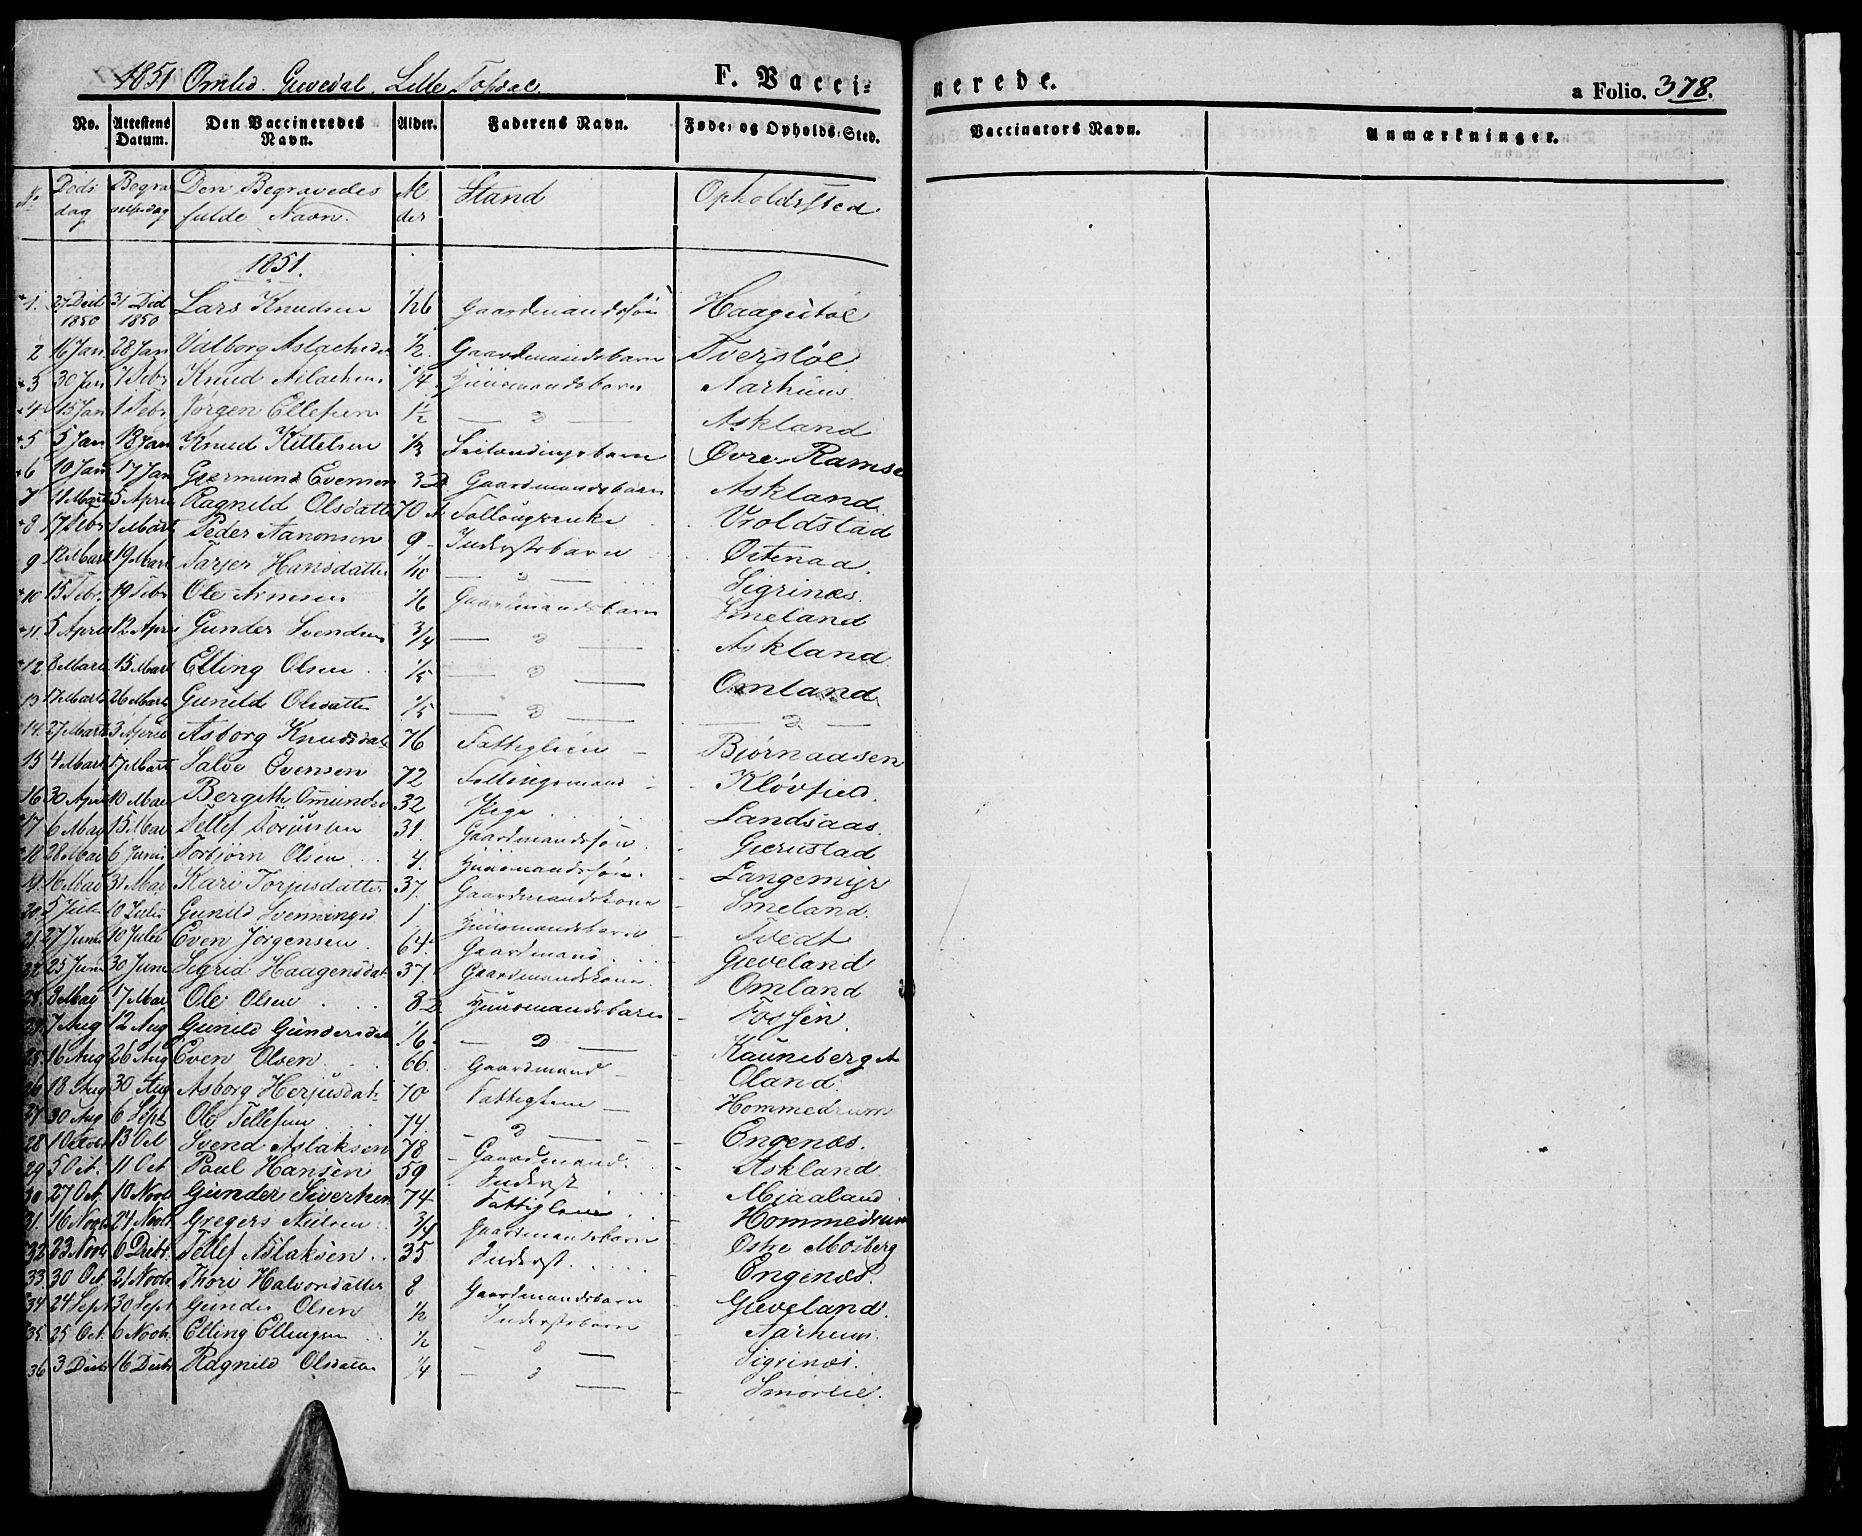 1851 Omlid. Gievedal. Lille Topdal. F. Vacci- nerede. a Folio. 378.
No. Attestens Datum. Den Vaccineredes Navn. Alder. Faderens Navn. Føde- og Opholds-Sted. Vaccinators Navn. Anmærkninger.
No Døds dag Begravelsesdag Den Begravedes fulde Navn. Alder Stand Opholdssted
1851.
1. 27 Decb 1850 31 Decb 1850 Lars Knudsen 1/26 Gaardmandssøn
2 16 Jan 28 Jan Valborg Aslachsd 1/2. Gaardmandsbarn Tversløl
3 30 Jan 7 Febr Knud Aslachsen 1/4 Huusmandsbarn Aarhuus
4 15 Jan 1 Febr Jørgen Ellefsen 1 1/2 — D — Askland
5 5 Jan 18 Jan Knud Kittelsen 1/3 Leilændingsbarn Øvre Ramse
6 10 Jan 17 Jan Giermund Evensen 3 D Gaardmandsbarn Askland
7 11 Marts 5 April Ragnild Olsdatter 70 Vroldstad
8 17 Febr 1 Marts Peder Aanonsen 9 Inderstbarn
9 12 Marts 19 Marts Tarjer Hansdatter 1/10 — D — Sigrinæs.
10 15 Febr. 19 Febr Ole Arnesen 1/6 Gaardmandsbarn Smeland
11. 5 April 12 April Gunder Svendsen 3/4 — D — Askland
12 8 Marts 15 Marts Elling Olsen 1/5 — D — Omland
13 17 Marts 26 Marts Gunild Olsdatter 1/5 — D — — D —
14. 27 Marts 3 April Asborg Knudsdat 76 Fattiglem Bjørnaasen
15 4 Marts 17 Marts Salve Evensen 72 Follougsmand Kløvfield.
16 30 April 10 Mai Bergith Omundsd 32 Pige Landsaas.
17 6 Mai 15 Mai Tellef Torjussen 31. Gaardmandssøn. Gierustad
18 28 Mai 6 Juni Torbjørn Olsen 4. Huusmandssøn. Langemyr
19. 16 Mai 31 Mai Kari Torjusdatter 37. Gaardmandskone Smeland.
20. 5 Juli 10 Juli Gunild Svenningsd 1 Huusmandsbarn Tvedt
21. 27 Juni 10 Juli Even Jørgensen 64. Gaardmand Gieveland
22 25 Juni 30 Juni Sigrid Haagensdat 37. Gaardmandskone. Omland
23. 3 Mai 17 Mai Ole Olsen 8 D Huusmandsbarn Fossen
24. 7 Aug 12 Aug Gunild Gundersdat 1/6 — D —
25. 16 Aug 26 Aug Even Olsen 66. Gaardmand Oland.
26 18 Aug 30 Aug Asborg Herjusdat 70 Fattiglem Hommedrum
27 30 Aug 6 Sept Ole Tellefsen 74. — D — Engenæs.
28 13 Oct Svend Aslaksen 78 Gaardmand Askland
29 5 Oct. 11 Oct Paul Hansen 59 Inderst Mjaaland
30 27 Oct. 10 Novb Gunder Siversen 74 Fattiglem Hommedrum
31. 16 Novb 24 Novb Gregers Nielsen 3/4 Gaardmandsbarn Østre Moiberg
32 23 Novb 6 Decbr Tellef Aslaksen 35 Inderst Engenæs.
33. 30 Oct. 21 Novb Thori Halvorsdatter 8 Gaardmandsbarn Gieveland.
34 24 Sept 30 Sept Gunder Olsen 1/2 Inderstbarn Aarhuus
35. 25 Oct. 6 Novb. Elling Ellingsen 1/2 — D — Sigrinæs.
36 3 Decbr 16 Decbr Ragnild Olsdatter 1/4 — D — Smørlie.